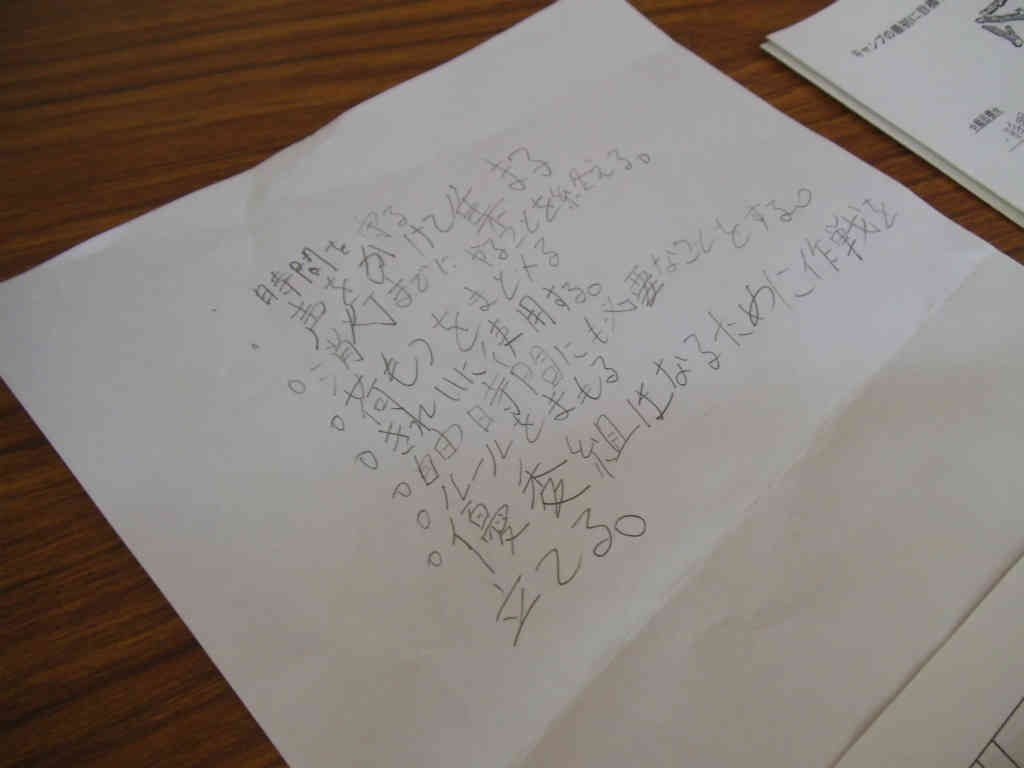 時間を守る
・声をかけて集まる
。消灯までに やることを終える。
。荷もつをまとめる
。きれいに使用する。
。昼の時間にも必要なことをする。
。ルールをまもる
。優夜組はなるために作戦を
立てる。
キャンプの最初に目標